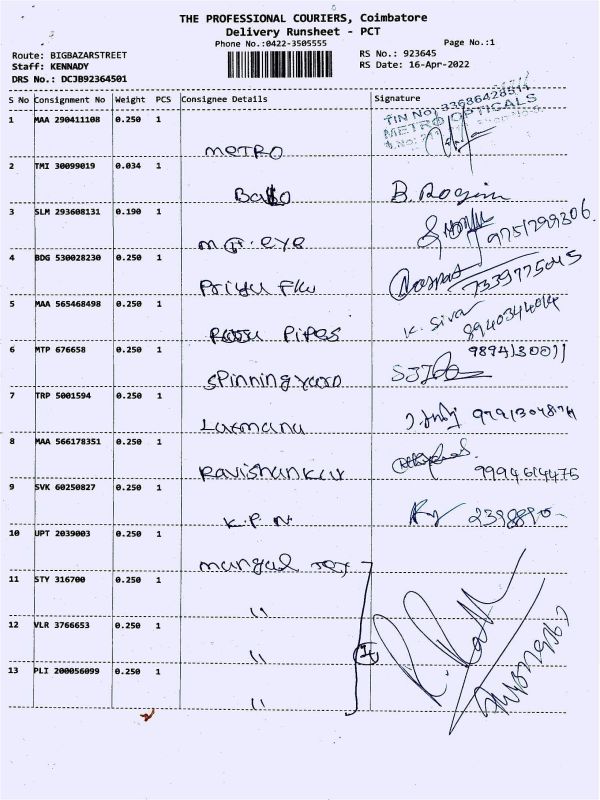 THE PROFESSIONAL COURIERS, Coimbatore
Delivery Runsheet - PCT
Phone No.:0422-3505555
Page No.:1
Route: BIGBAZARSTREET
Staff: KENNADY
DRS No.: DCJB92364501
RS No.: 923645
RS Date: 16-Apr-2022
S No Consignment No Weight PCS Consignee Details Signature
1 MAA 290411108 0.250 1
TIN No: 33686428511
METRO OPTICALS
METRO
2 TMI 30099019 0.034 1
B.
3 SLM 293608131 0.190 1
9751299306.
M.J. eye
4 BDG 530028230 0.250 1
Priyu
7339775045
5 MAA 565468498 0.250 1
Pipes K. Siva 8940344014
6 MTP 676658 0.250 1
Spinning
7 TRP 5001594 0.250 1
Laxmana
8 MAA 566178351 0.250 1
Ravishankar 9994614475
9 SVK 60250827 0.250 1
K.P.N
10 UPT 2039003 0.250 1
mangal Tex
11 STY 316700 0.250 1
"
12 VLR 3766653 0.250 1
"
13 PLI 200056099 0.250 1
"